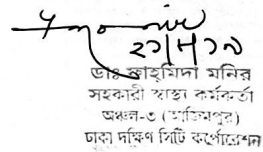 ২১।৮।১৯
ডাঃ ফাহমিদা মনির
সহকারী স্বাস্থ্য কর্মকর্তা
অঞ্চল-৩ (আজিমপুর)
ঢাকা দক্ষিণ সিটি কর্পোরেশন